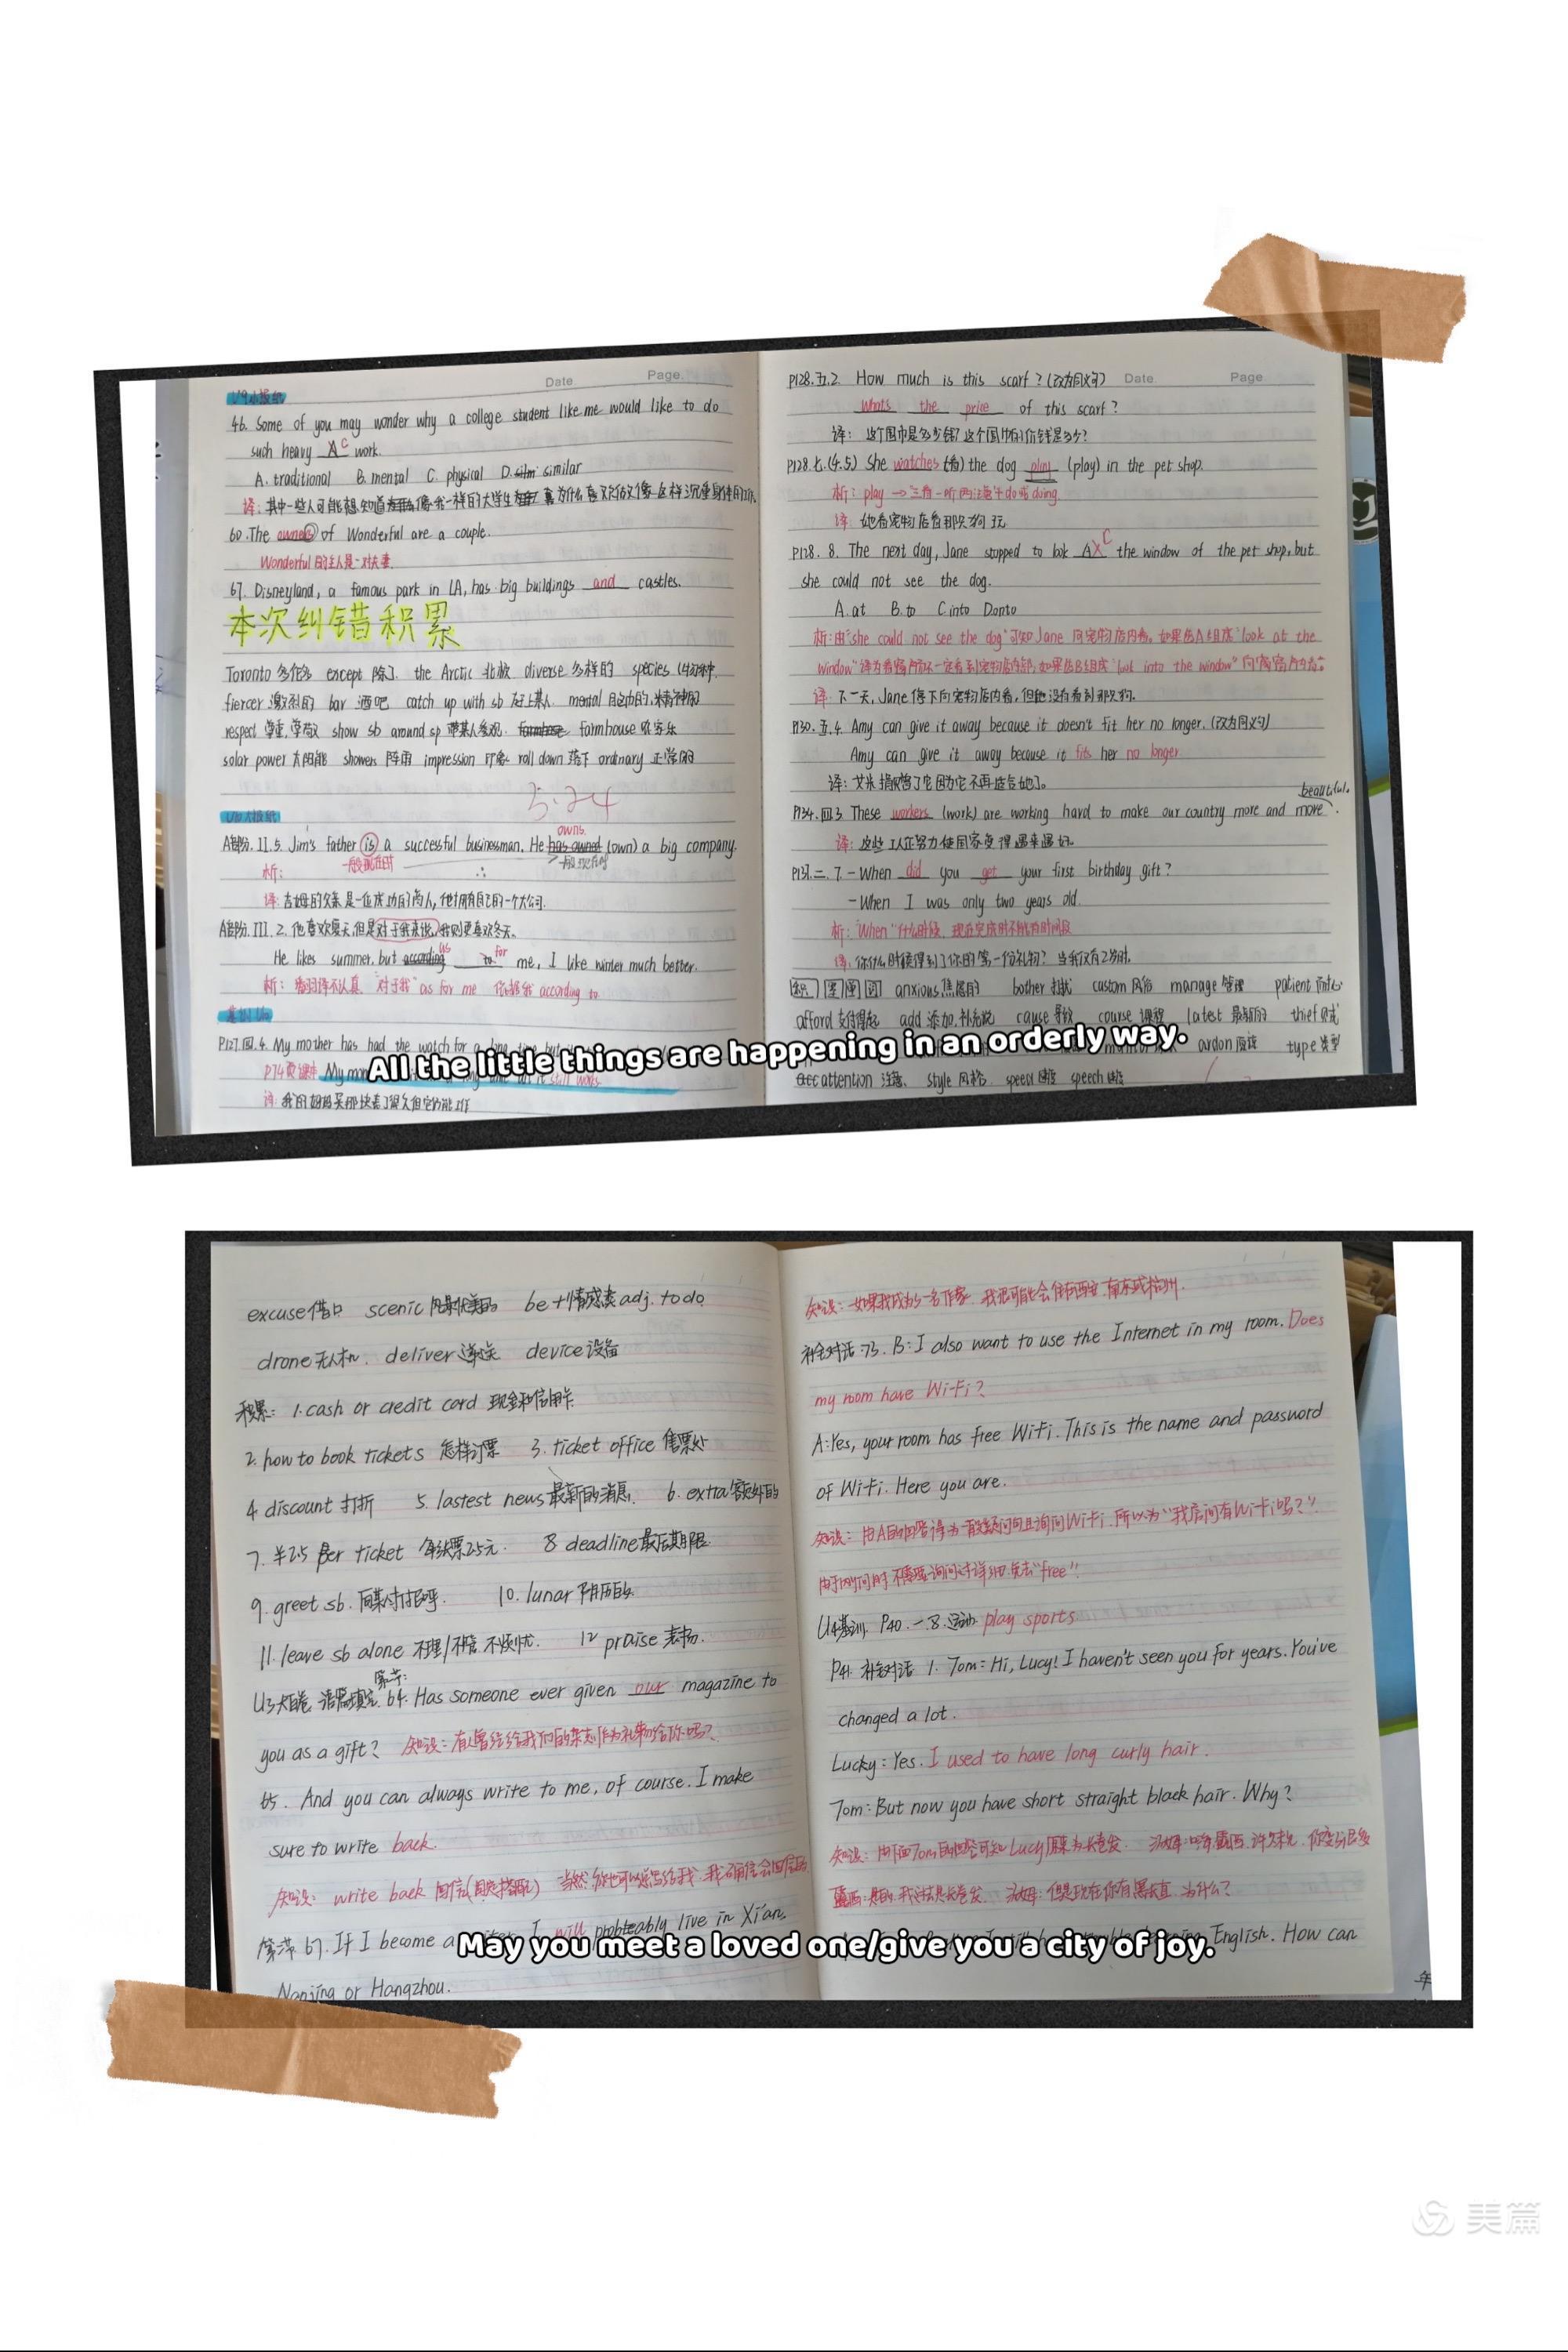 Date. Page.
46. Some of you may wonder why a college student like me would like to do
such heavy A C work.
A. traditional B. mental C. physical D. similar
译: 其中一些人可能想知道像我一样的大学生为什么喜欢做像这样沉重身体的工作.
60. The owners of Wonderful are a couple.
Wonderful 的主人是一对夫妻
67. Disneyland, a famous park in LA, has big buildings and castles.
本次纠错积累
Toronto 多伦多 except 除了 the Arctic 北极 diverse 多样的 species (生)物种
fiercer 激烈的 bar 酒吧 catch up with sb 赶上某人 mental 精神的
respect 尊重, 尊敬 show sb around sp 带某人参观. farmhouse 农家乐
solar power 太阳能 showers 阵雨 impression 印象 roll down 落下 ordinary 正常的
3.24
A部分. II. 5. Jim's father is a successful businessman. He has owned owns (own) a big company.
析: 一般现在时 ∴ 一般现在时
译: 吉姆的父亲是一位成功的商人, 他拥有自己的一个大公司.
A部分. III. 2. 他喜欢夏天, 但是对于我来说, 我则更喜欢冬天.
He likes summer, but according as to for me, I like winter much better.
析: 翻译不认真 "对于我" as for me 依据我 according to
P127. 四. 4. My mother has had the watch for a long time but it
still works
译: 我的妈妈买那块表了很久但它仍能工作
P128. 五. 2. How much is this scarf? (改为同义句) Date. Page
What's the price of this scarf?
译: 这个围巾是多少钱? 这个围巾的价钱是多少?
P128. 七. (4.5) She watches (看) the dog play (play) in the pet shop.
析: play → 三看一听两注意+do或doing
译: 她看宠物店看那只狗玩
P128. 8. The next day, Jane stopped to look A X C the window of the pet shop, but
she could not see the dog.
A. at B. to C. into D. onto
析: 由"she could not see the dog"可知Jane 向宠物店内看, 如果选A组成"look at the
window"译为看窗户 如果选C组成"look into the window"向窗户内看.
译: 下一天, Jane 停下向宠物店内看, 但她没有看到那只狗.
P130. 五. 4. Amy can give it away because it doesn't fit her no longer. (改为同义句)
Amy can give it away because it fits her no longer
译: 艾米捐赠了它因为它不再适合她了.
P134. 四. 3 These workers (work) are working hard to make our country more and more beautiful.
译: 这些工人正努力使国家变得越来越好.
P137. 二. 7. - When did you get your first birthday gift?
- When I was only two years old.
析: "When"什么时候, 现在完成时不能有时间段
译: 你什么时候得到了你的第一份礼物? 当我仅有2岁时.
anxious 焦虑的 bother 打扰 custom 风俗 manage 管理 patient 耐心
afford 支付得起 add 添加, 补充说 cause 导致 course 课程 latest 最新的 thief 贼
type 类型
attention 注意 style 风格 speed 速度 speech
All the little things are happening in an orderly way.
excuse 借口 scenic 风景优美的 be+情感类adj. to do
drone 无人机. deliver 递送 device 设备
积累: 1. cash or credit card 现金和信用卡
2. how to book tickets 怎样订票 3. ticket office 售票处
4. discount 打折 5. lastest news 最新的消息. 6. extra 额外的
7. ¥25 per ticket 每张票25元. 8 deadline 最后期限
9. greet sb. 向某人打招呼. 10. lunar 阴历的
11. leave sb alone 不理/不管 不烦扰. 12 praise 表扬.
64. Has someone ever given our magazine to
you as a gift? 知识: 有人曾经给我们的杂志作为礼物给你吗?
65. And you can always write to me, of course. I make
sure to write back.
知识: write back 回信(固定搭配) 当然你也可以总写给我, 我确信会回信的
67. If I become a I will probteably live in Xi'an,
Nanjing or Hangzhou.
知识: 如果我成为一名作家. 我很可能会住在西安, 南京或杭州.
补全对话: 73. B: I also want to use the Internet in my room. Does
my room have Wi-Fi?
A: Yes, your room has free WiFi. This is the name and password
of WiFi. Here you are.
知识: 由A的回答得为一般疑问句且询问WiFi. 所以为"我房间有WiFi吗?"
不需要询问过详细 免去"free"
U4基训. P40. 一. 8. 运动 play sports
P41. 补全对话 1. Tom: Hi, Lucy! I haven't seen you for years. You've
changed a lot.
Lucky: Yes. I used to have long curly hair.
Tom: But now you have short straight black hair. Why?
知识: 由下面Tom的回答可知Lucy原来为长卷发. 汤姆: 嗨露西, 许久未见. 你变了很多
露西: 是的, 我过去是长卷发 汤姆: 但是现在你有黑长直. 为什么?
English. How can
May you meet a loved one/give you a city of joy.
美篇